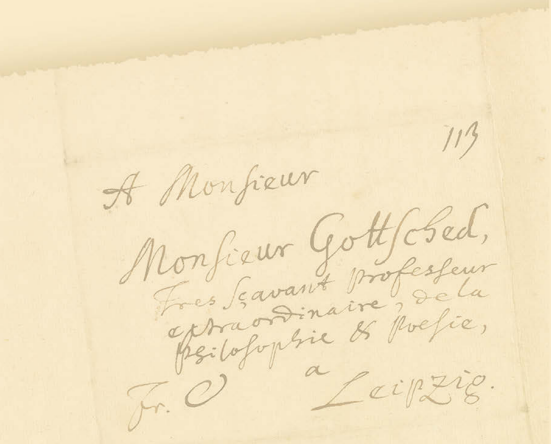 113
A Monsieur
Monsieur Gottsched,
Tres sçavant professeur
extraordinaire, de la
philosophie & Poesie,
a
Leipzig.
Fr.